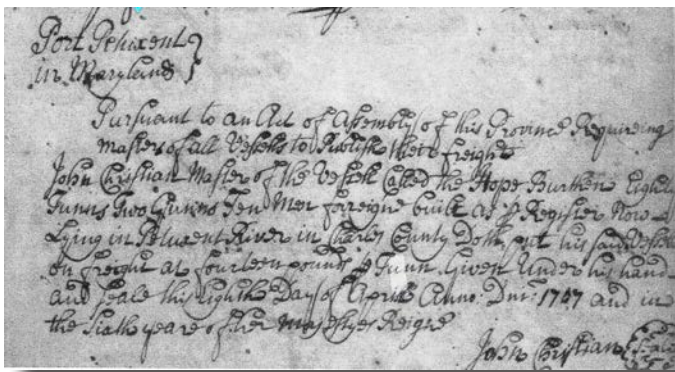 Port Petuxent
in Maryland
Pursuant to an Act of Assembly of this Province Requireing
Masters of all Vessells to Publish their freight
John Christian Master of the Vessell Called the Hope Burthen Eighty
Tunns Two Gunns Ten Men foreigne built as ꝑ Register Now
Lying in Petuxent River in Charles County Doth put his said Vessell
on freight at fourteen pounds ꝑ Tunn Given Under his hand
and Seale this Eighth Day of Aprill Anno: Dni: 1707 and in
the Sixth yeare of her Majestyes Reigne
John Christian Seale